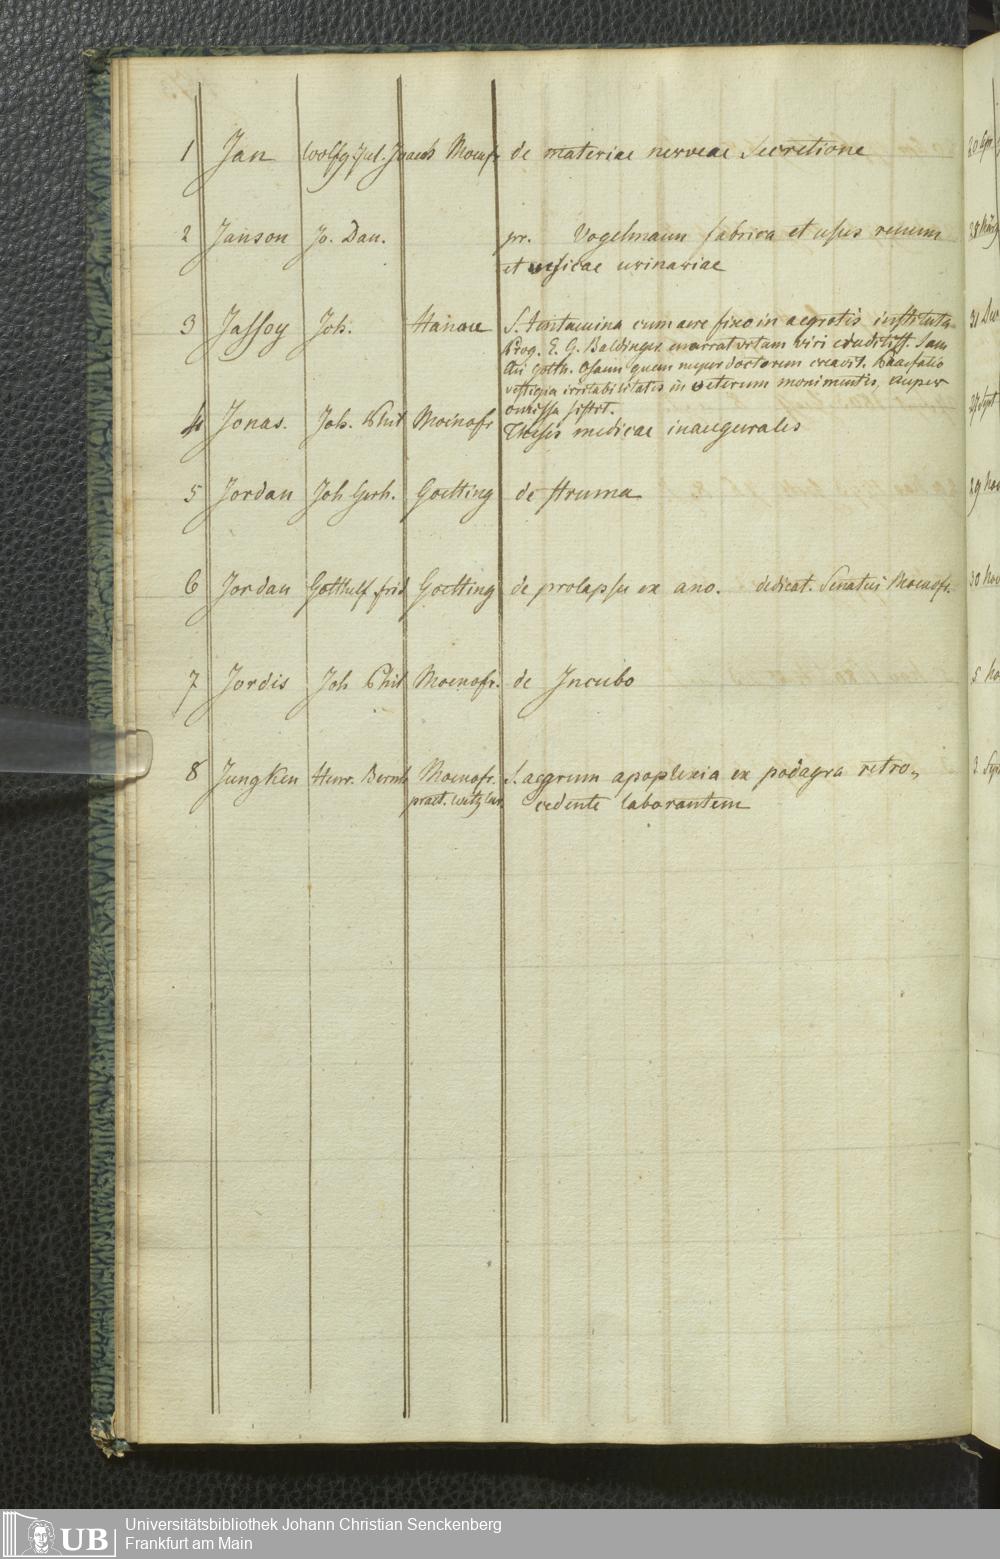 1 Jan Wolfg. Jul. Jgnaeds Moenofr. de materiae nerveae Secretione
2 Janson Jo. Dan. pr. Vogelmann fabrica et usus renum
et vesicae urinariae
3 Jassoy Joh. Hanov S. tentamina cum aere fixo in aegrotis instituta
Prog. E. G. Baldinger enarrat vitam viri eruditiss. Sam
Gotth. quem nuper doctorem creavit. Praefatio
vestigia irritabilitatis in veterum monimentis, nuper
omissa sistit.
4 Jonas. Joh. Phil Moenofr Thesis medicae inaugurales
5 Jordan Joh Gerh. Goetting de struma
6 Jordan Gotthelf frid Goetting de prolapsu ex ano. dedicat. Senatui Moenofr.
7 Jordis Joh Phil Moenofr. de Incubo
8 Jungken Henr. Bernh Moenofr. S. aegrum apoplexia ex podagra retro„
pract. wetzlar. cedente laborantem
20 Apr
28
31 Dec
27 Sept
29 Nov
30 Nov
5 No
3. Sep
Universitätsbibliothek Johann Christian Senckenberg
Frankfurt am Main
UB